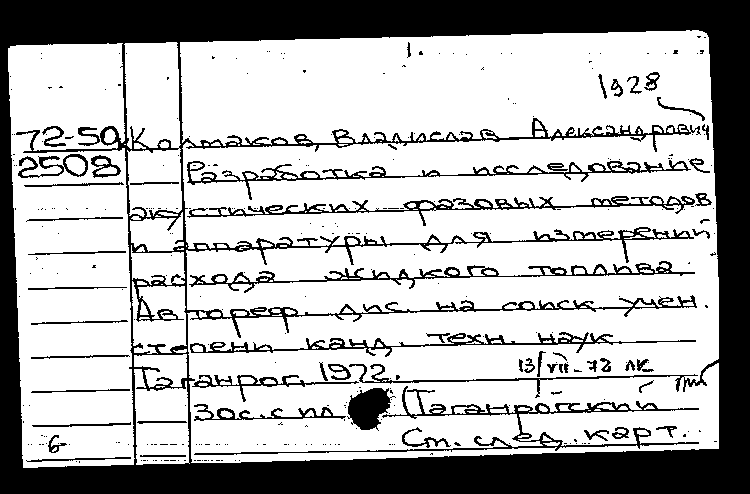 1.
1928
72-50 Колмаков, Владислав Александрович
2508 Разработка и исследование
акустических фазовых методов
и аппаратуры для измерений
расхода жидкого топлива.
Автореф. дис. на соиск. учен.
степени канд. техн. наук.
Таганрог, 1972. 13/VII-72
30с. с ил. (Таганрогский
6 См. след. карт.